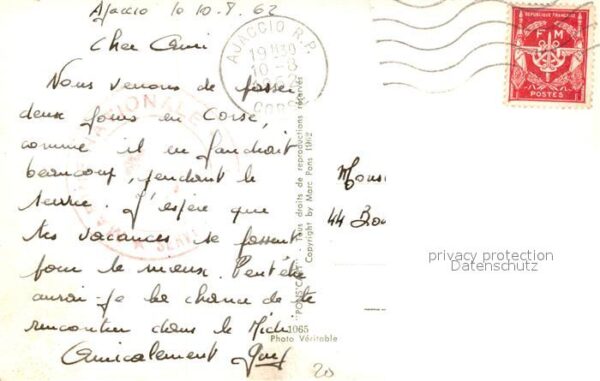 Ajaccio le 10.8.62
Cher Ami
Nous venons de passer
deux jours en Corse,
comme il en faudrait
beaucoup, pendant le
service. J'espère que
tes vacances se passent
pour le mieux. Peut être
aurai-je la chance de te
rencontrer dans le Midi
Amicalement
20
AJACCIO R.P.
19H30
10-8
1962
CORSE
NATIONALE
"PONS'CARD" - Tous droits de reproductions réservés
Copyright by Marc Pons 1962
1065
Photo Véritable
REPUBLIQUE FRANÇAISE
F M
POSTES
Mons
44 Bou
privacy protection
Datenschutz